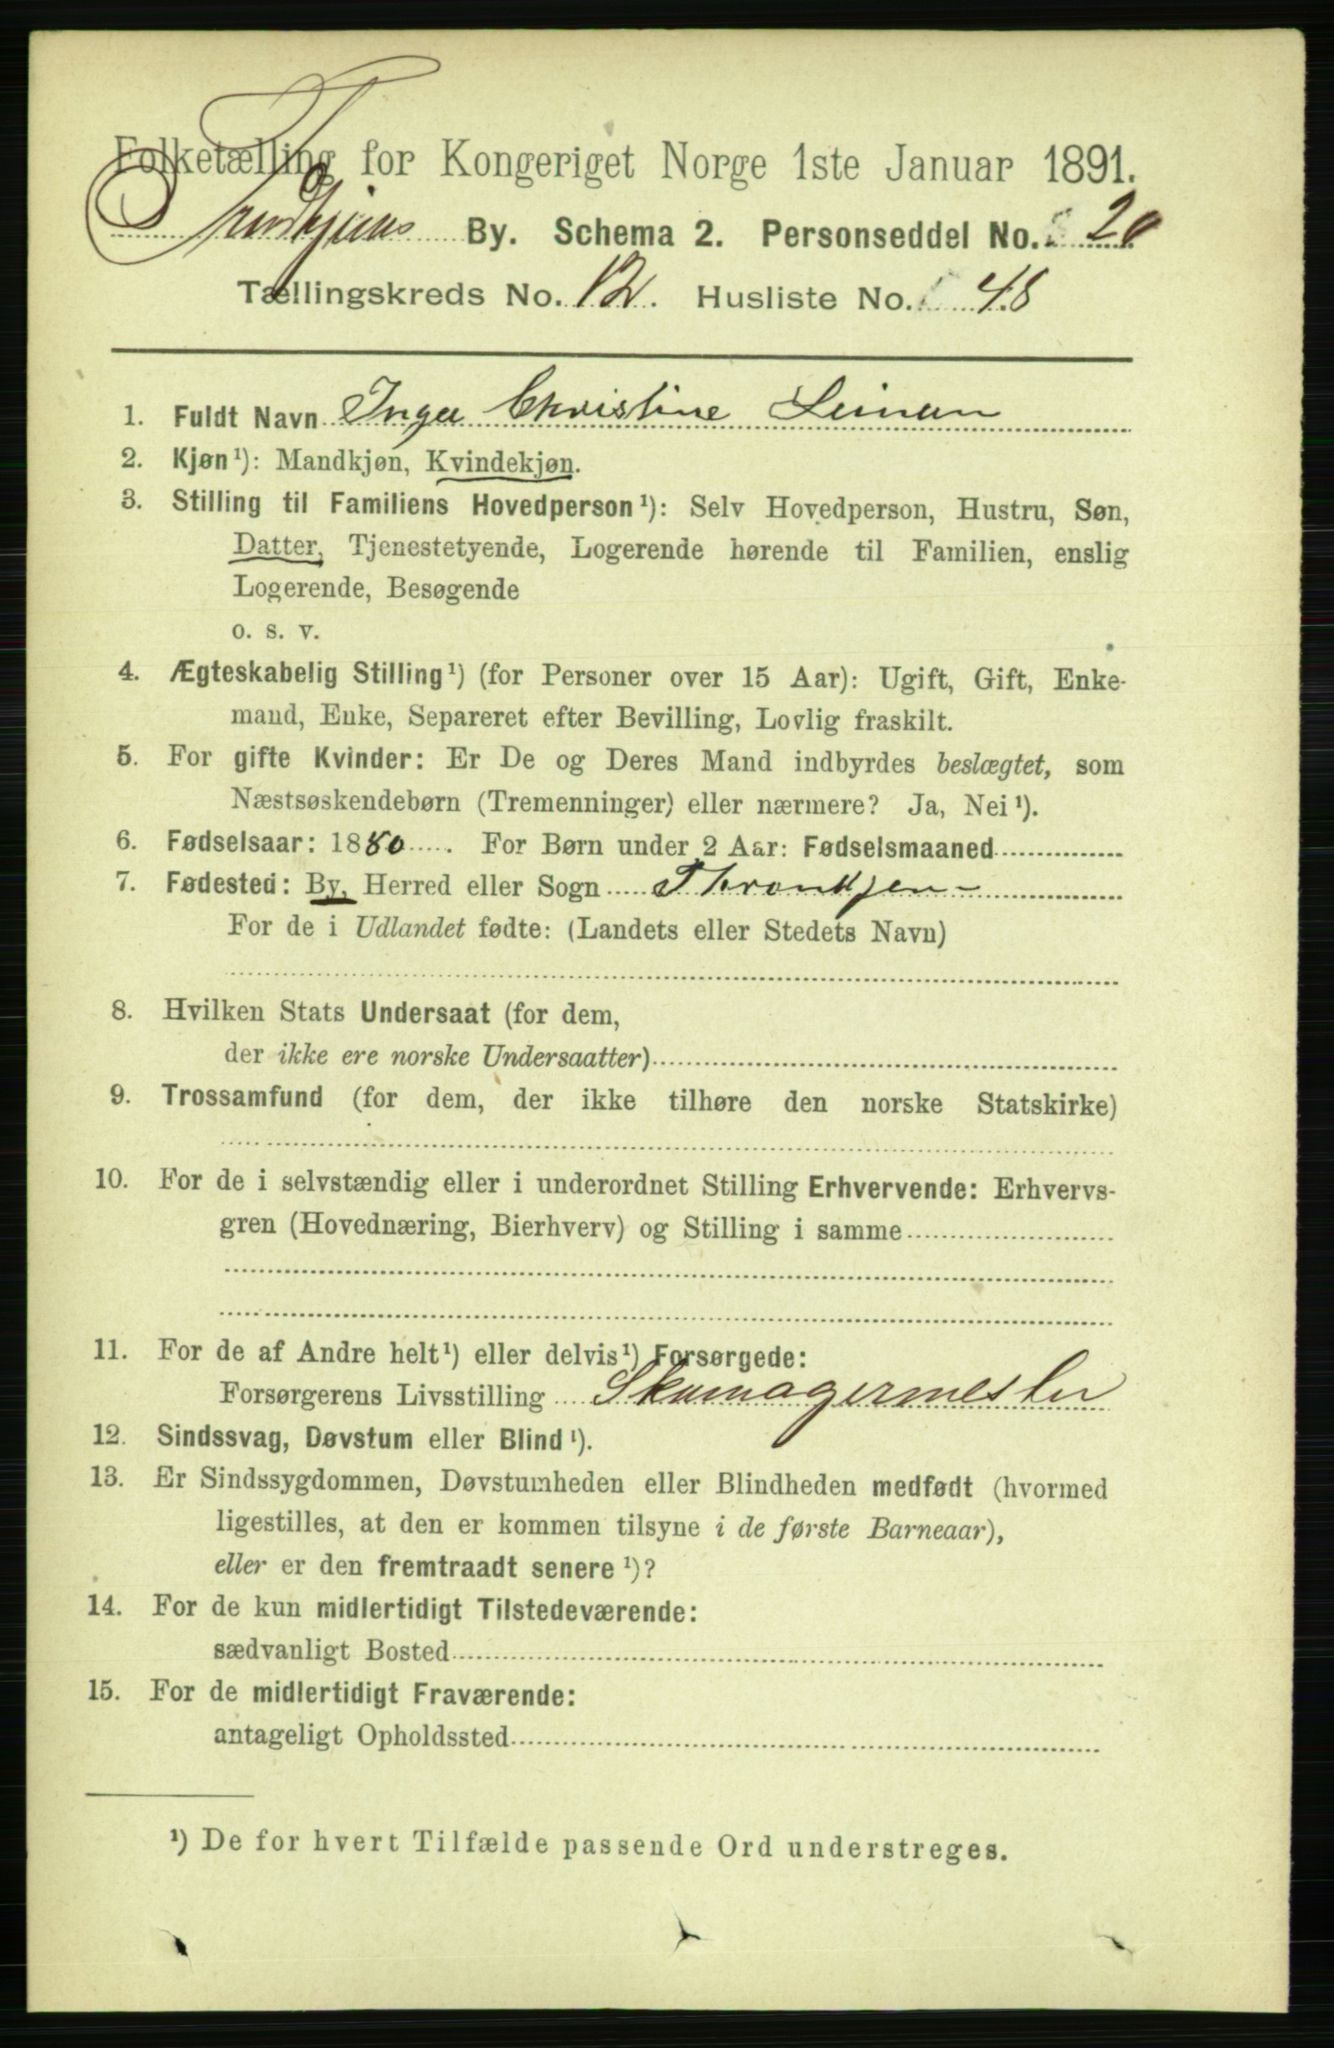 Folketælling for Kongeriget Norge 1ste Januar 1891.
Trondhjems By. Schema 2. Personseddel No. 20
Tællingskreds No. 12. Husliste No. 48
1. Fuldt Navn Inga Christine Leinan
2. Kjøn¹): Mandkjøn, Kvindekjøn.
3. Stilling til Familiens Hovedperson¹): Selv Hovedperson, Hustru, Søn,
Datter, Tjenestetyende, Logerende hørende til Familien, enslig
Logerende, Besøgende
o. s. v.
4. Ægteskabelig Stilling¹) (for Personer over 15 Aar): Ugift, Gift, Enke-
mand, Enke, Separeret efter Bevilling, Lovlig fraskilt.
5. For gifte Kvinder: Er De og Deres Mand indbyrdes beslægtet, som
Næstsøskendebørn (Tremenninger) eller nærmere? Ja, Nei¹).
6. Fødselsaar: 1880. For Børn under 2 Aar: Fødselsmaaned
7. Fødested: By, Herred eller Sogn Thronhjem
For de i Udlandet fødte: (Landets eller Stedets Navn)
8. Hvilken Stats Undersaat (for dem,
der ikke ere norske Undersaatter)
9. Trossamfund (for dem, der ikke tilhøre den norske Statskirke)
10. For de i selvstændig eller i underordnet Stilling Erhvervende: Erhvervs-
gren (Hovednæring, Bierhverv) og Stilling i samme
11. For de af Andre helt¹) eller delvis¹) Forsørgede:
Forsørgerens Livsstilling Skomagermester
12. Sindssvag, Døvstum eller Blind¹).
13. Er Sindssygdommen, Døvstumheden eller Blindheden medfødt (hvormed
ligestilles, at den er kommen tilsyne i de første Barneaar),
eller er den fremtraadt senere¹)?
14. For de kun midlertidigt Tilstedeværende:
sædvanligt Bosted
15. For de midlertidigt Fraværende:
antageligt Opholdssted
¹) De for hvert Tilfælde passende Ord understreges.